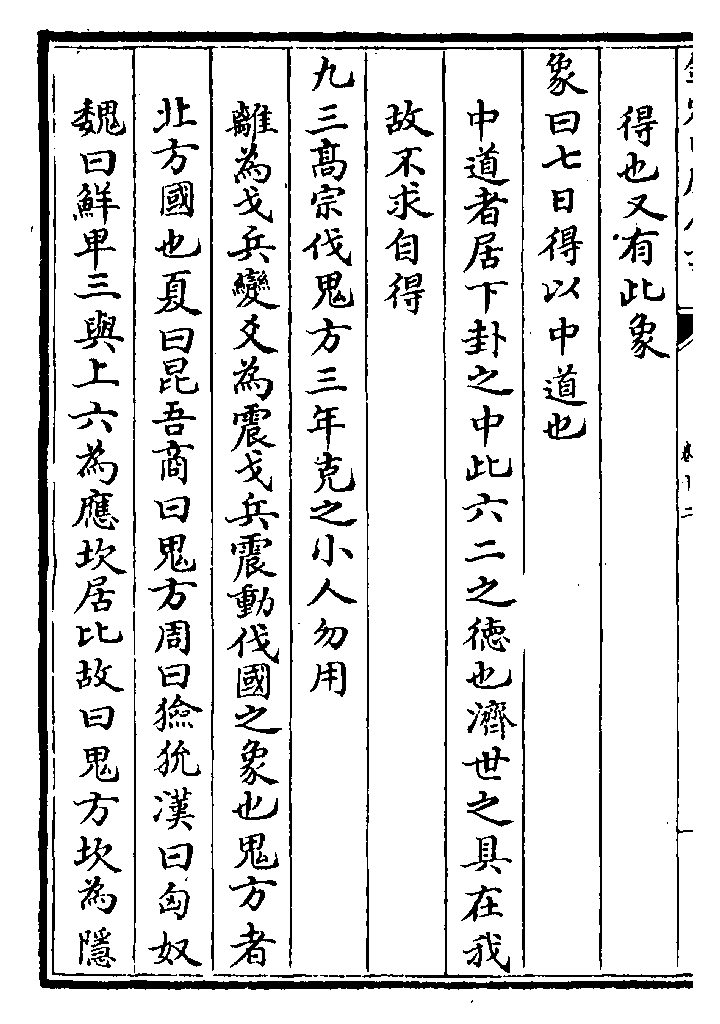 得也又有此象
象曰七日得以中道也
中道者居下卦之中此六二之德也濟世之具在我
故不求自得
九三高宗伐鬼方三年克之小人勿用
離為戈兵變爻為震戈兵震動伐國之象也鬼方者
北方國也夏曰昆吾商曰鬼方周曰獫狁漢曰匈奴
魏曰鮮卑三與上六為應坎居北故曰鬼方坎為隱